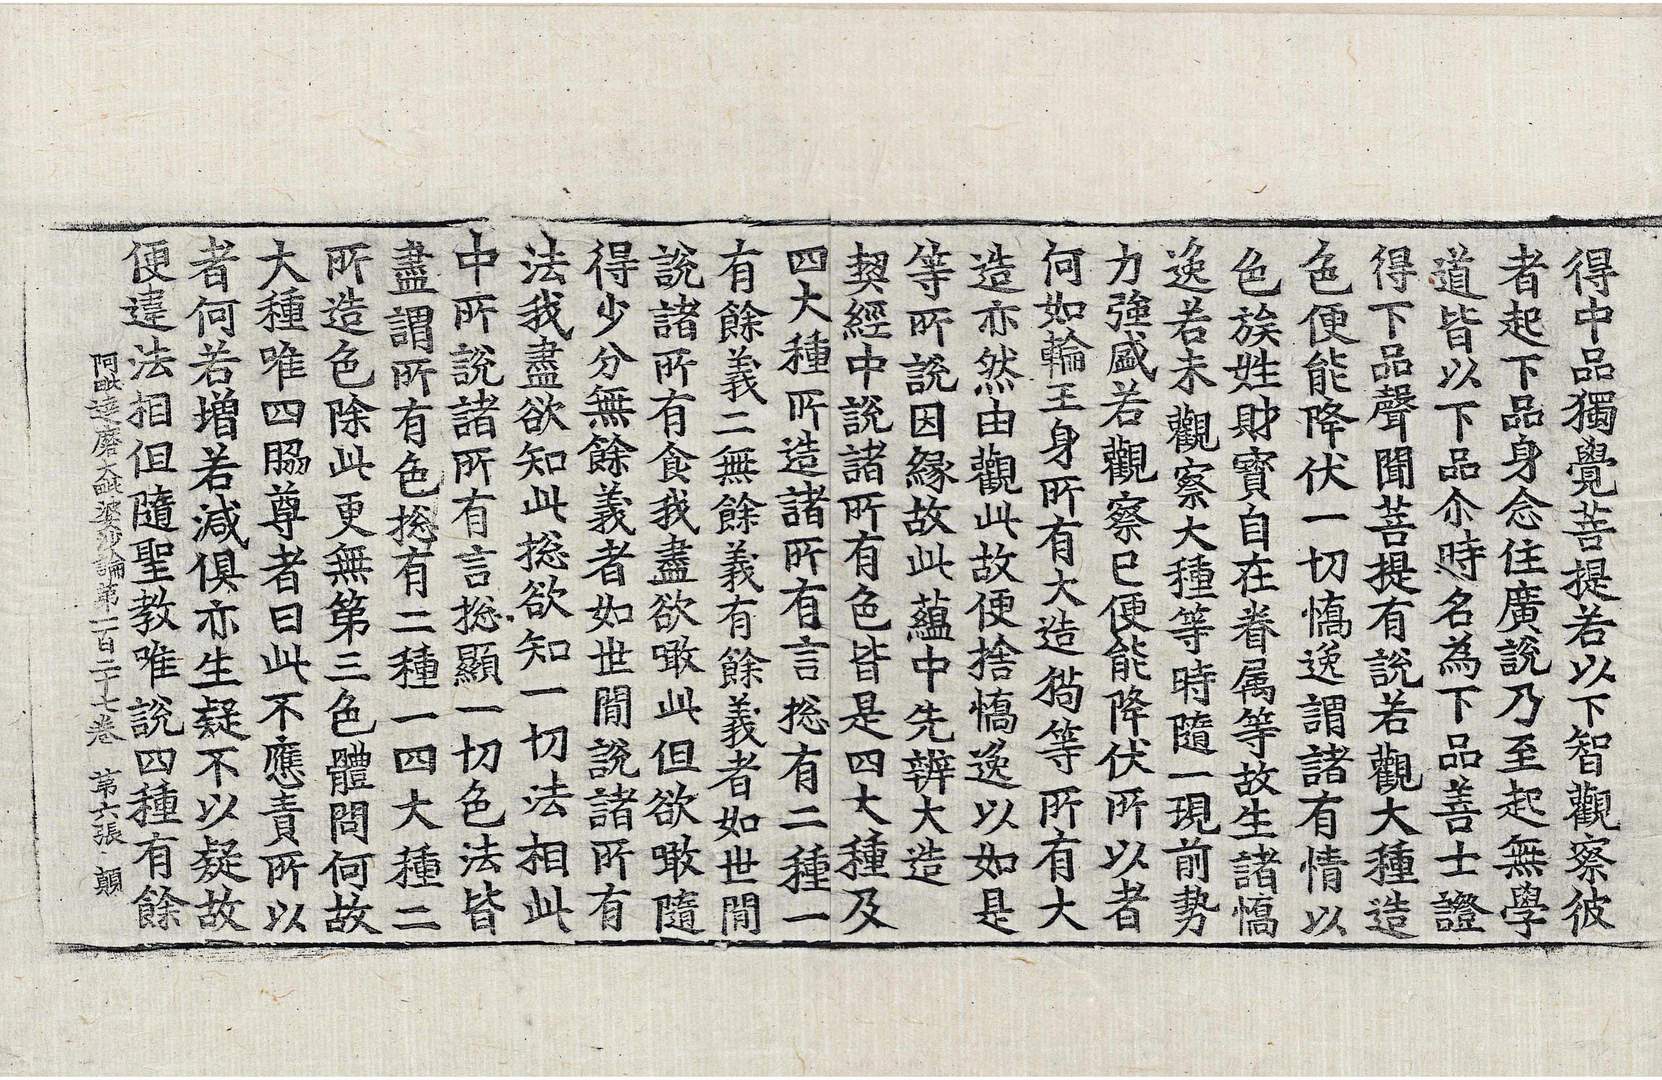 得中品獨覺菩提若以下智觀察彼
者起下品身念住廣說乃至起無學
道皆以下品尒時名為下品善士證
得下品聲聞菩提有說若觀大種造
色便能降伏一切憍逸謂諸有情以
色族姓財寶自在眷属等故生諸憍
逸若未觀察大種等時隨一現前勢
力強盛若觀察已便能降伏所以者
何如輪王身所有大造㺃等所有大
造亦然由觀此故便捨憍逸以如是
等所說因緣故此蘊中先辨大造
契經中說諸所有色皆是四大種及
四大種所造諸所有言揔有二種一
有餘義二無餘義有餘義者如世間
說諸所有食我盡欲噉此但欲噉隨
得少分無餘義者如世間說諸所有
法我盡欲知此揔欲知一切法相此
中所說諸所有言揔顯一切色法皆
盡謂所有色揔有二種一四大種二
所造色除此更無第三色體問何故
大種唯四脇尊者曰此不應責所以
者何若增若減俱亦生疑不以疑故
便違法相但隨聖教唯說四種有餘
阿毗達磨大毗婆沙論第一百二十七卷　第六張　顛